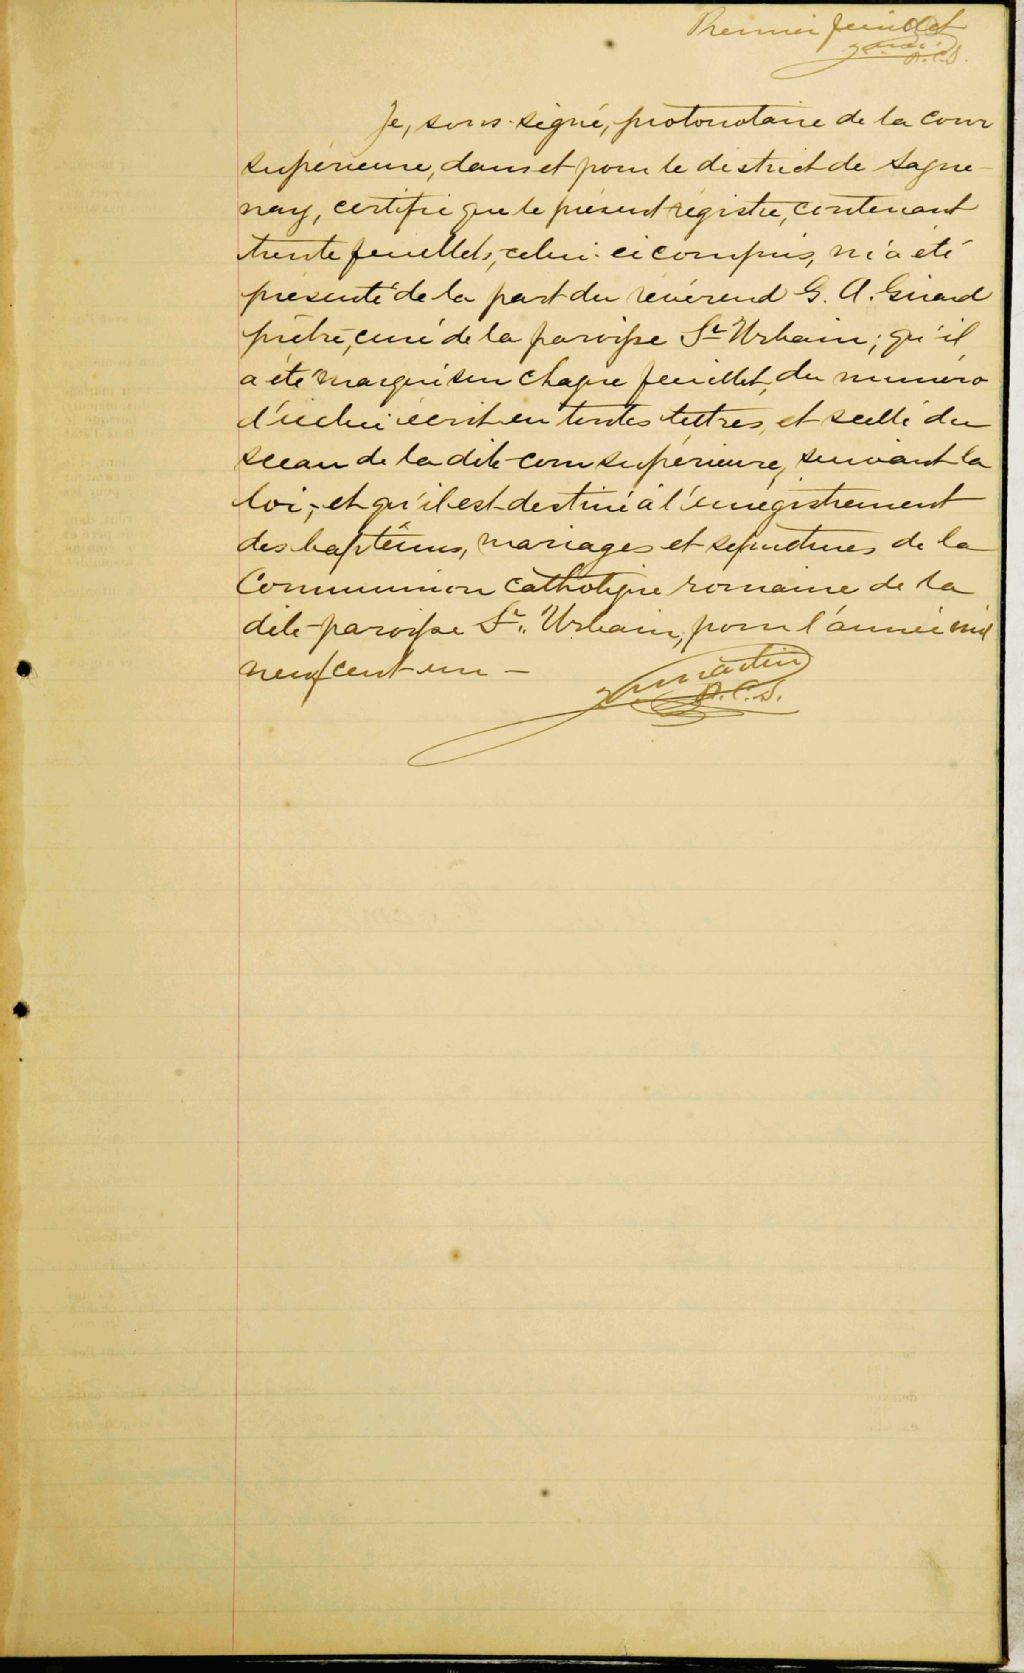 Premier feuillet
P.C.S.
Je, sous-signé, protonotaire de la Cour
supérieure, dans et pour le district de Sague-
nay, certifie que le présent régistre, contenant
trente feuillets, celui-ci compris, m'a été
présenté de la part du révérend G. A. Girard
prêtre, curé de la paroisse St Urbain; qu'il
a été marqué sur chaque feuillet, du numéro
d'icelui écrit en toutes lettres, et scellé du
sceau de la dite cour supérieure, suivant la
loi, et qu'il est destiné à l'enrégistrement
des baptêmes, mariages et sépultures de la
Communion catholique romaine de la
dite paroisse St. Urbain, pour l'année mil
neuf cent un —
P.C.S.